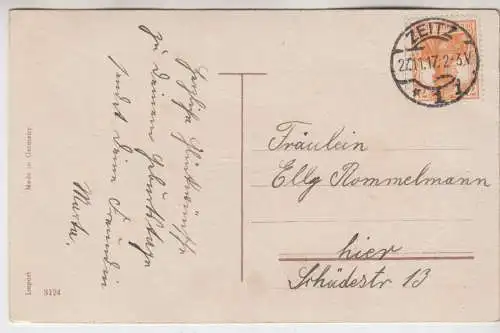 Herzliche Glückwünsche
zu Deinem Geburtstage
sendet Deine Freundin
Marta.
ZEITZ
27.11.17. 2-3.V
* 1 i
Fräulein
Elly Rommelmann
hier
Schädestr 13
Made in Germany
3124